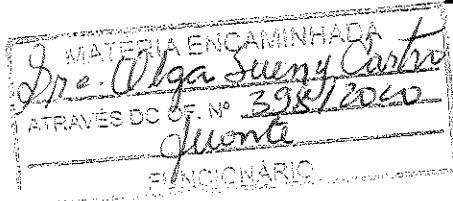 MATÉRIA ENCAMINHADA
Dra. Olga Sueny Castro
ATRAVÉS DO OF. Nº 398/2020
FUNCIONÁRIO